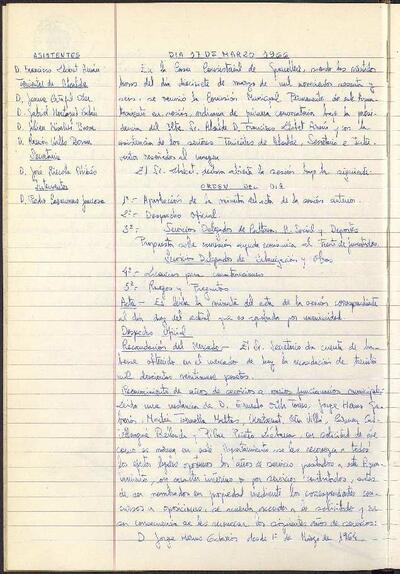 ASISTENTES
D. Francisco Llobet Arnán
Tenientes de Alcalde
D. Jaime
D. Gabriel
D. Julián
D. Ramón
Secretario
D. José
Interventor
D. Pedro
DIA 17 DE MARZO 1966
En la Casa Consistorial de Granollers, siendo las
horas del día diecisiete de marzo de mil novecientos sesenta y
seis, se reunió la Comisión Municipal Permanente de este Ayun-
tamiento en sesión ordinaria de primera convocatoria bajo la presi-
dencia del Iltre. Sr. Alcalde D. Francisco Llobet Arnán y con la
asistencia de los señores Tenientes de Alcalde, Secretario e Inter-
ventor reseñados al margen.
El Sr. Llobet, declara abierta la sesión bajo la siguiente:
ORDEN DEL DIA
1º.- Aprobación de la minuta del acta de la sesión anterior.
2º.- Despacho Oficial.
3º.- Servicios Delegados de Cultura, H. Social y Deportes
Propuesta sobre concesión ayuda económica al
Servicio Delegado de Urbanización y Obras
4º.- Licencias para construcciones
5º.- Ruegos y Preguntas
Acta.- Es leída la minuta del acta de la sesión correspondiente
al día diez del actual que es aprobada por unanimidad.
Despacho Oficial
Recaudación del Mercado.- El Sr. Secretario da cuenta de ha-
berse obtenido en el mercado de hoy la recaudación de
mil doscientas veintinueve pesetas.
Reconocimiento de años de servicios a varios funcionarios municipales
Leída una instancia de D. Jorge
Montserrat Vila Villà, Carmen
y Pilar Prieto en solicitud de que
como se indica en este Ayuntamiento se les reconozca a todos
los efectos legales oportunos los años de servicio prestados a este Ayun-
tamiento, con carácter interino o por servicios contratados, antes
de ser nombrados en propiedad mediante los correspondientes con-
cursos u oposiciones, se acuerda acceder a lo solicitado y en
su consecuencia se les reconocen los siguientes años de servicios:
D. Jorge desde 1º de Marzo de 1964.